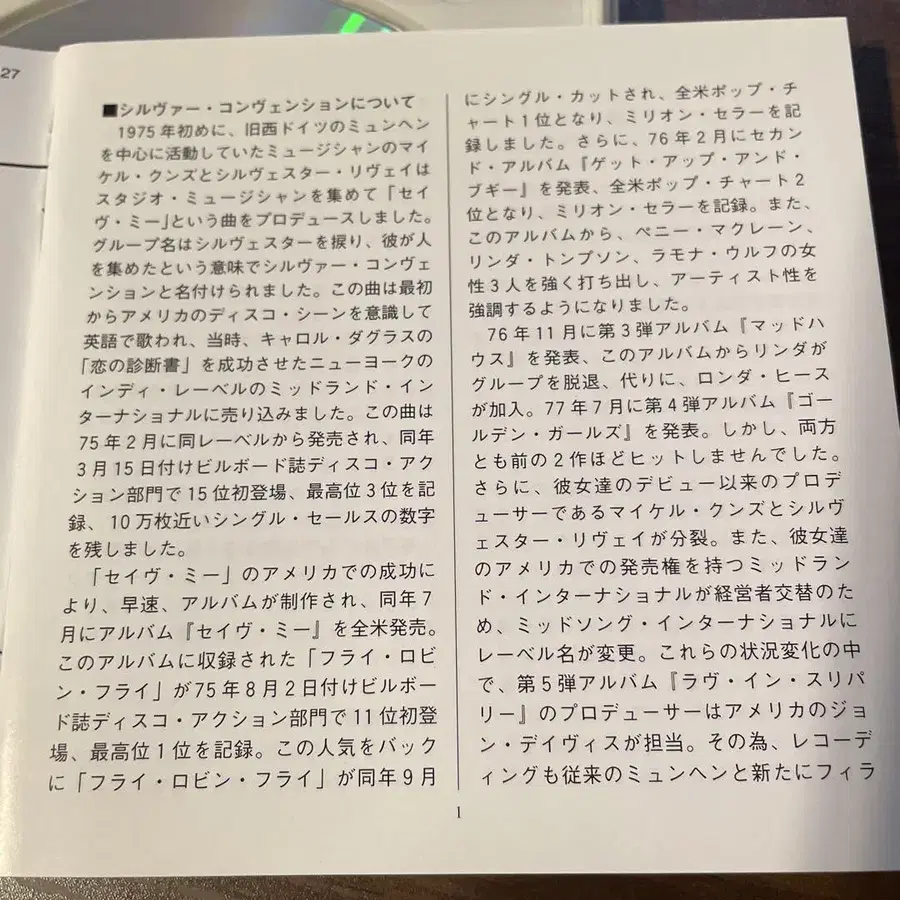 27
■シルヴァー・コンヴェンションについて
1975年初めに、旧西ドイツのミュンヘン
を中心に活動していたミュージシャンのマイ
ケル・クンズとシルヴェスター・リヴェイは
スタジオ・ミュージシャンを集めて「セイ
ヴ・ミー」という曲をプロデュースしました。
グループ名はシルヴェスターを捩り、彼が人
を集めたという意味でシルヴァー・コンヴェ
ンションと名付けられました。この曲は最初
からアメリカのディスコ・シーンを意識して
英語で歌われ、当時、キャロル・ダグラスの
「恋の診断書」を成功させたニューヨークの
インディ・レーベルのミッドランド・イン
ターナショナルに売り込みました。この曲は
75年2月に同レーベルから発売され、同年
3月15日付けビルボード誌ディスコ・アク
ション部門で15位初登場、最高位3位を記
録、10万枚近いシングル・セールスの数字
を残しました。
「セイヴ・ミー」のアメリカでの成功に
より、早速、アルバムが制作され、同年7
月にアルバム『セイヴ・ミー』を全米発売。
このアルバムに収録された「フライ・ロビ
ン・フライ」が75年8月2日付けビルボー
ド誌ディスコ・アクション部門で11位初登
場、最高位1位を記録。この人気をバック
に「フライ・ロビン・フライ」が同年9月
にシングル・カットされ、全米ポップ・チ
ャート1位となり、ミリオン・セラーを記
録しました。さらに、76年2月にセカン
ド・アルバム『ゲット・アップ・アンド・
ブギー』を発表、全米ポップ・チャート2
位となり、ミリオン・セラーを記録。また、
このアルバムから、ペニー・マクレーン、
リンダ・トンプソン、ラモナ・ウルフの女
性3人を強く打ち出し、アーティスト性を
強調するようになりました。
76年11月に第3弾アルバム『マッドハ
ウス』を発表、このアルバムからリンダが
グループを脱退、代りに、ロンダ・ヒース
が加入。77年7月に第4弾アルバム『ゴー
ルデン・ガールズ』を発表。しかし、両方
とも前の2作ほどヒットしませんでした。
さらに、彼女達のデビュー以来のプロデ
ューサーであるマイケル・クンズとシルヴ
ェスター・リヴェイが分裂。また、彼女達
のアメリカでの発売権を持つミッドラン
ド・インターナショナルが経営者交替のた
め、ミッドソング・インターナショナルに
レーベル名が変更。これらの状況変化の中
で、第5弾アルバム『ラヴ・イン・スリパ
リー』のプロデューサーはアメリカのジョ
ン・デイヴィスが担当。その為、レコーデ
ィングも従来のミュンヘンと新たにフィラ
1